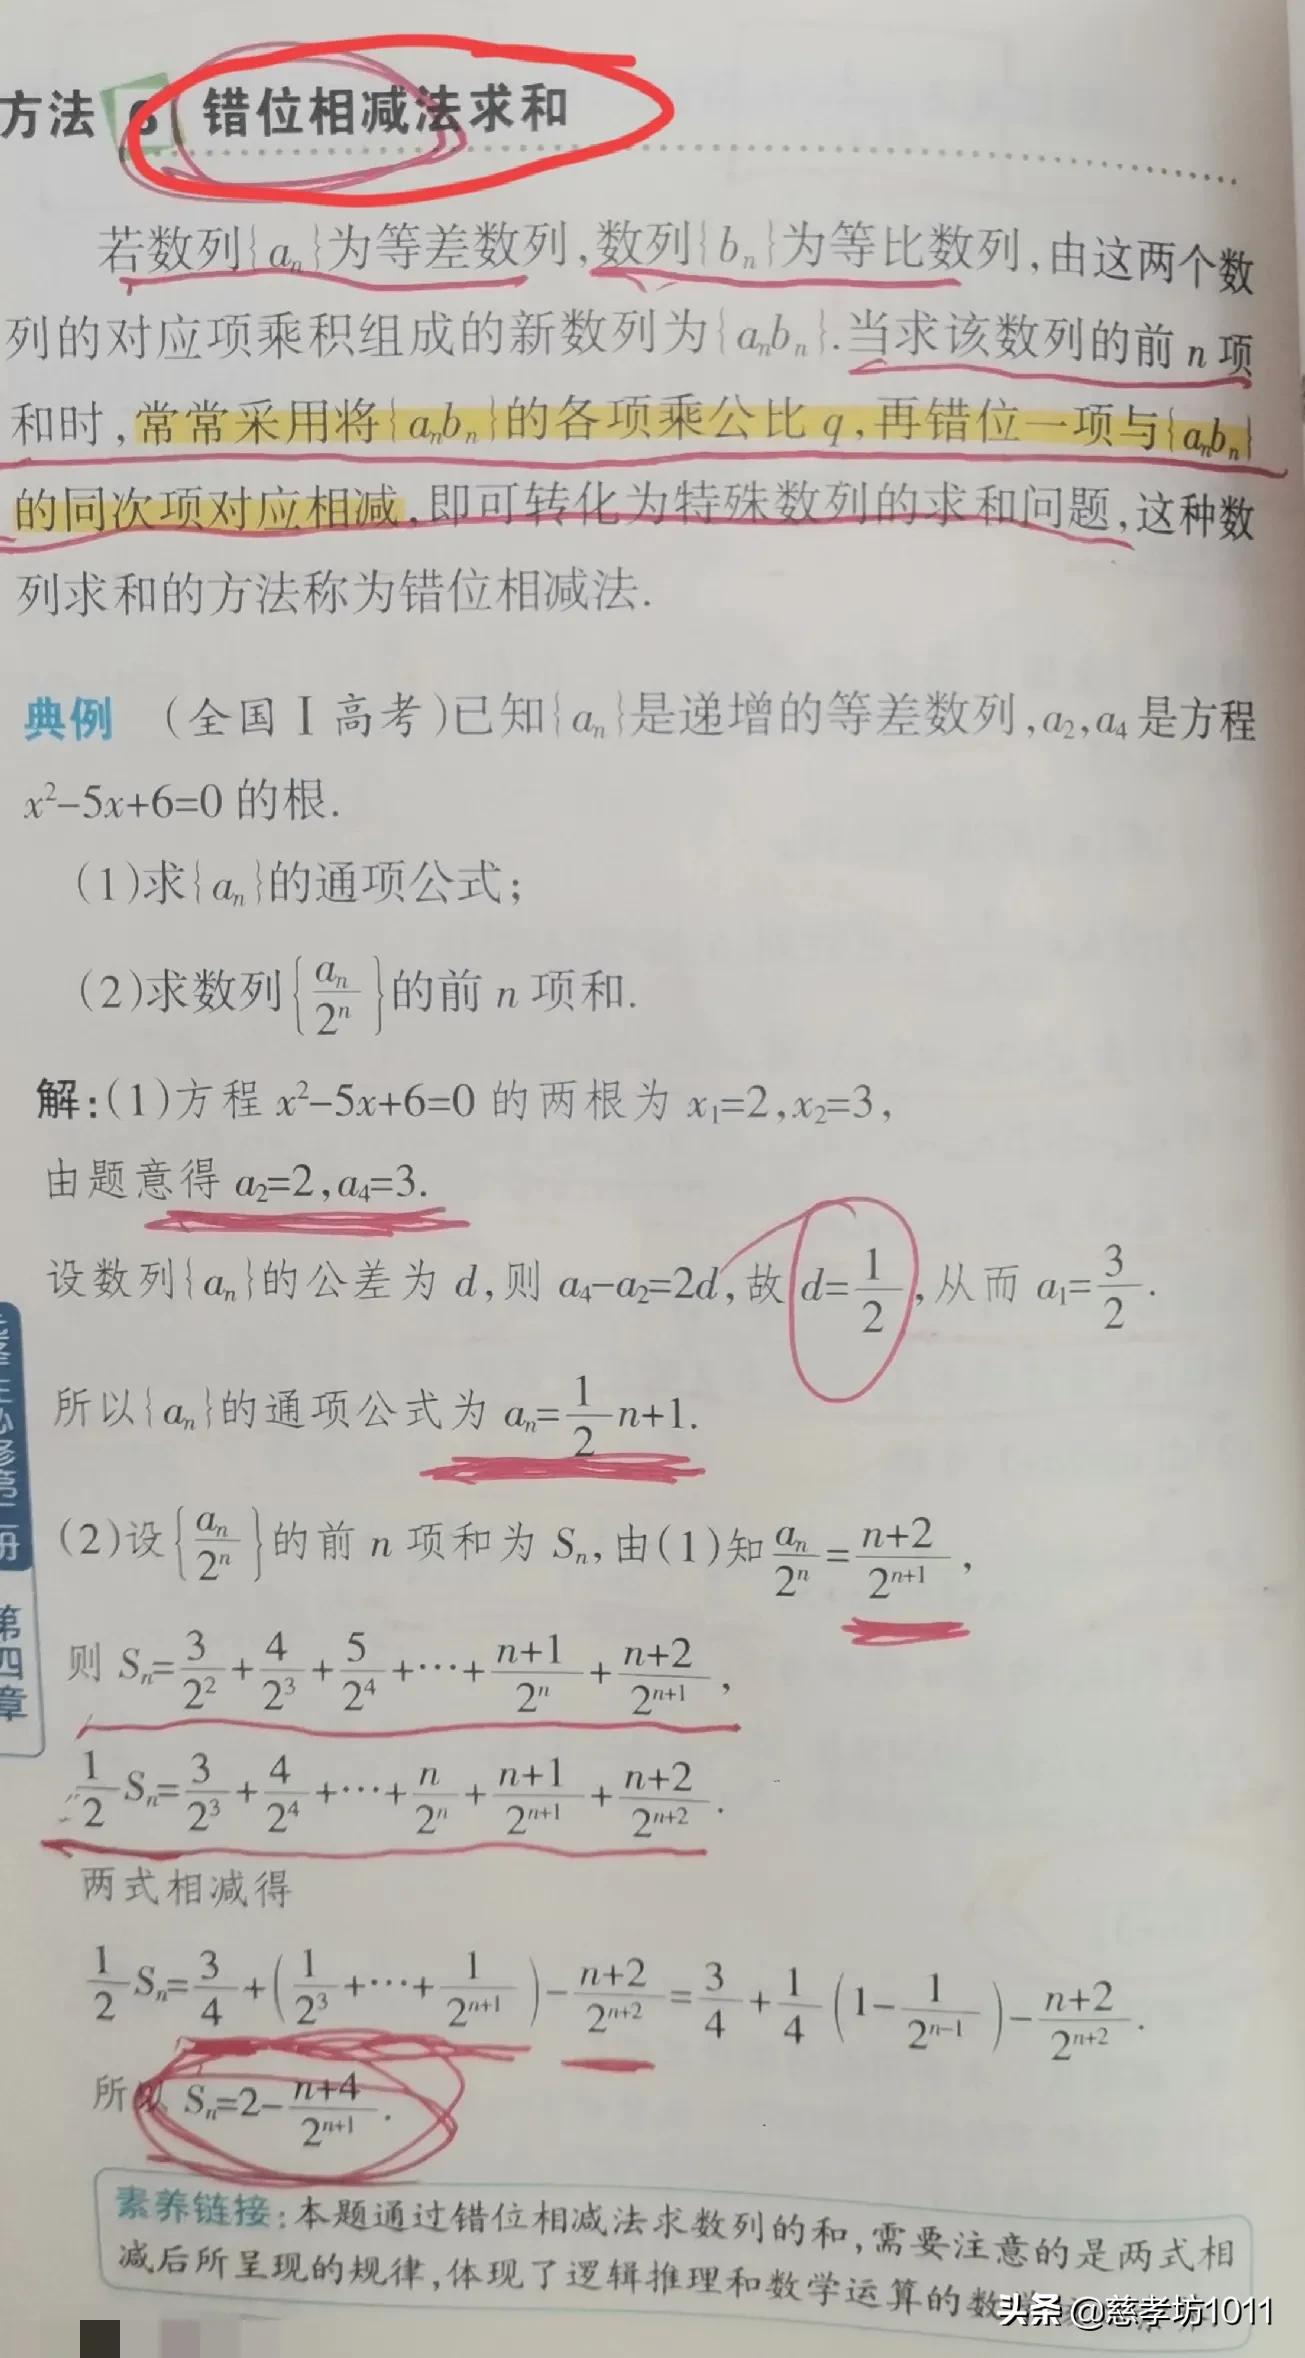 方法 6 错位相减法求和
若数列{aₙ}为等差数列,数列{bₙ}为等比数列,由这两个数
列的对应项乘积组成的新数列为{aₙbₙ}.当求该数列的前 n 项
和时,常常采用将{aₙbₙ}的各项乘公比 q,再错位一项与{aₙbₙ}
的同次项对应相减,即可转化为特殊数列的求和问题,这种数
列求和的方法称为错位相减法.
典例 (全国Ⅰ高考)已知{aₙ}是递增的等差数列,a₂,a₄是方程
x²-5x+6=0 的根.
(1)求{aₙ}的通项公式;
(2)求数列{aₙ/2ⁿ}的前 n 项和.
解:(1)方程 x²-5x+6=0 的两根为 x₁=2,x₂=3,
由题意得 a₂=2,a₄=3.
设数列{aₙ}的公差为 d,则 a₄-a₂=2d,故 d=1/2,从而 a₁=3/2.
所以{aₙ}的通项公式为 aₙ=1/2 n+1.
(2)设{aₙ/2ⁿ}的前 n 项和为 Sₙ,由(1)知 aₙ/2ⁿ=(n+2)/2ⁿ⁺¹,
则 Sₙ=3/2²+4/2³+5/2⁴+⋯+(n+1)/2ⁿ+(n+2)/2ⁿ⁺¹,
1/2 Sₙ=3/2³+4/2⁴+⋯+n/2ⁿ+(n+1)/2ⁿ⁺¹+(n+2)/2ⁿ⁺².
两式相减得
1/2 Sₙ=3/4+(1/2³+⋯+1/2ⁿ⁺¹)-(n+2)/2ⁿ⁺²=3/4+1/4(1-1/2ⁿ⁻¹)-(n+2)/2ⁿ⁺².
所以 Sₙ=2-(n+4)/2ⁿ⁺¹.
素养链接:本题通过错位相减法求数列的和,需要注意的是两式相
减后所呈现的规律,体现了逻辑推理和数学运算的数学
选择性必修第二册 第四章
头条 @慈孝坊1011